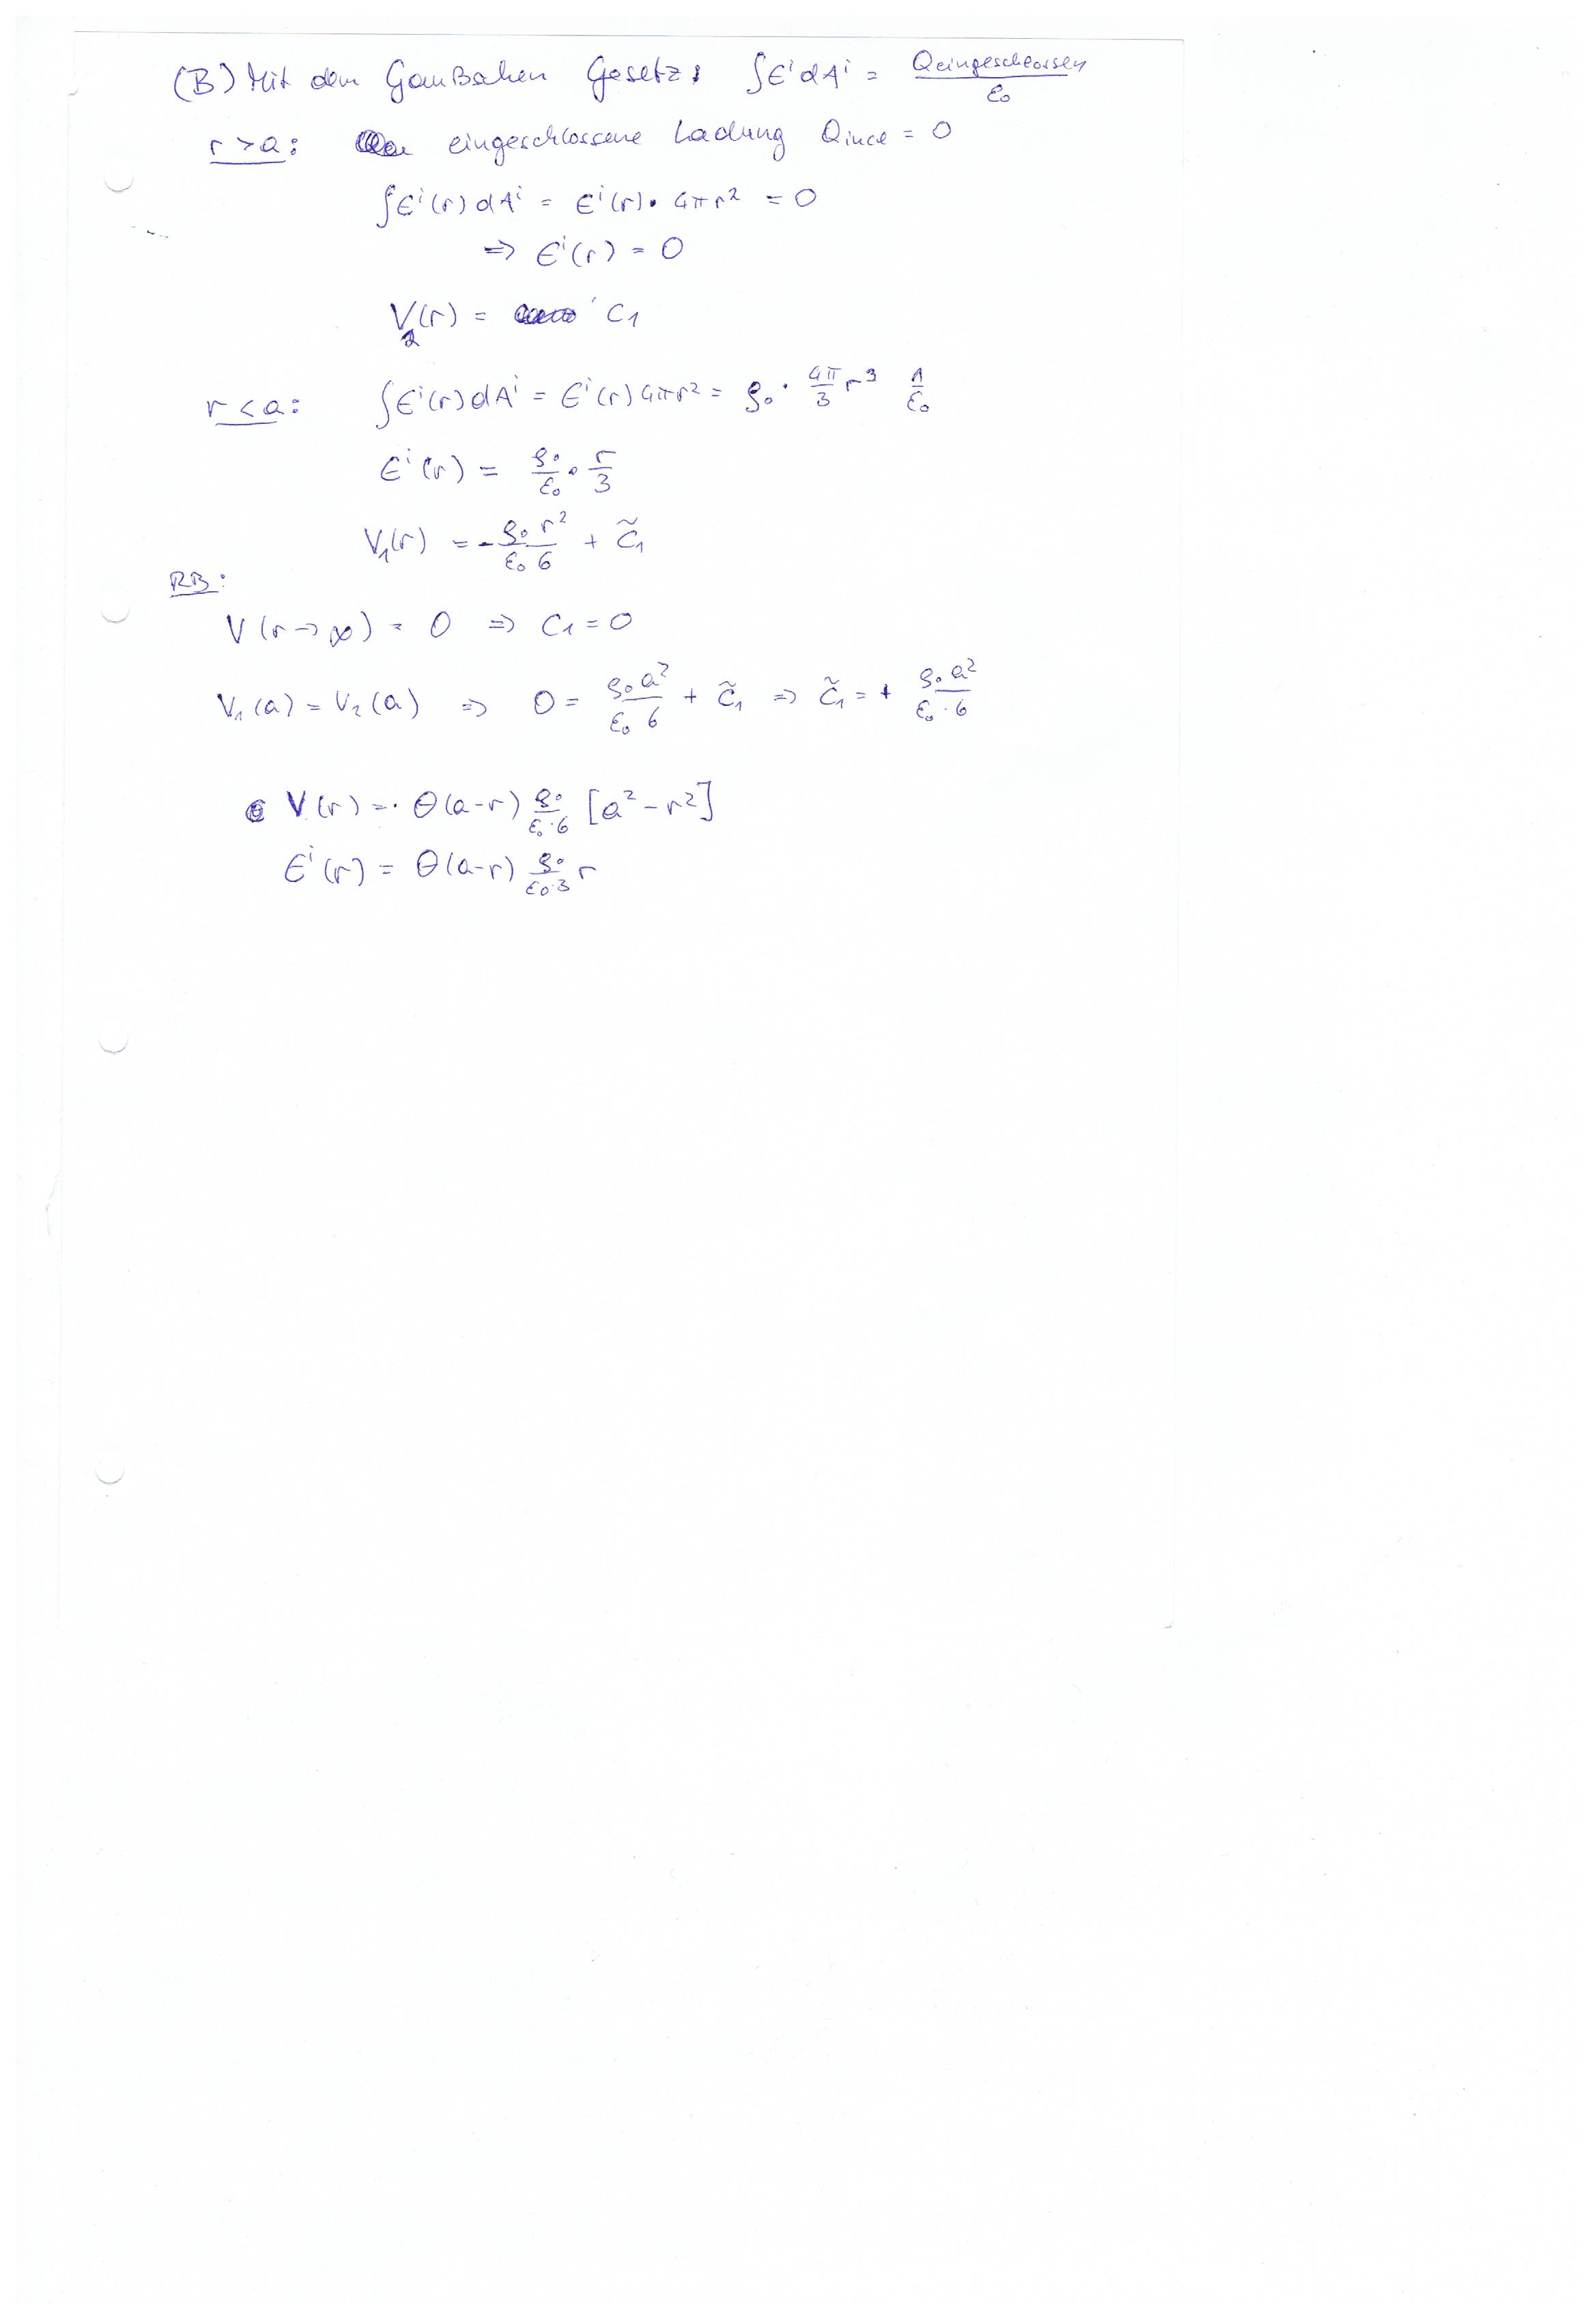 (B) Mit dem Gaußschen Gesetz: ∫E^i dA^i = Q_eingeschlossen / ε₀
r > a: eingeschlossene Ladung Q_incl = 0
∫E^i(r) dA^i = E^i(r) · 4πr² = 0
⇒ E^i(r) = 0
V₂(r) = C₁
r < a: ∫E^i(r) dA^i = E^i(r) 4πr² = ρ₀ · 4π/3 r³ 1/ε₀
E^i(r) = ρ₀/ε₀ · r/3
V₁(r) = - ρ₀ r² / ε₀ 6 + C̃₁
RB:
V(r→∞) = 0 ⇒ C₁ = 0
V₁(a) = V₂(a) ⇒ 0 = ρ₀ a² / ε₀ 6 + C̃₁ ⇒ C̃₁ = + ρ₀ a² / ε₀ · 6
V(r) = · Θ(a-r) ρ₀ / ε₀·6 [a² - r²]
E^i(r) = Θ(a-r) ρ₀ / ε₀·3 r